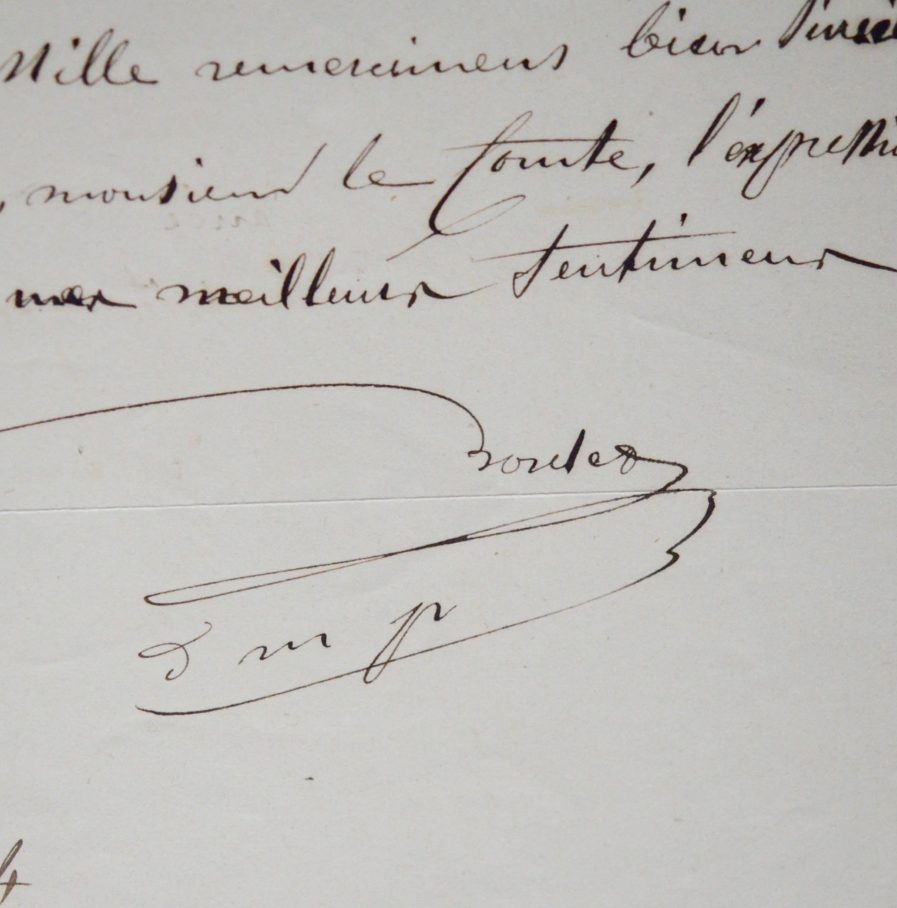 Mille remercimens bien
, monsieur le Comte, l'expressi
mes meilleurs sentimens
d m p